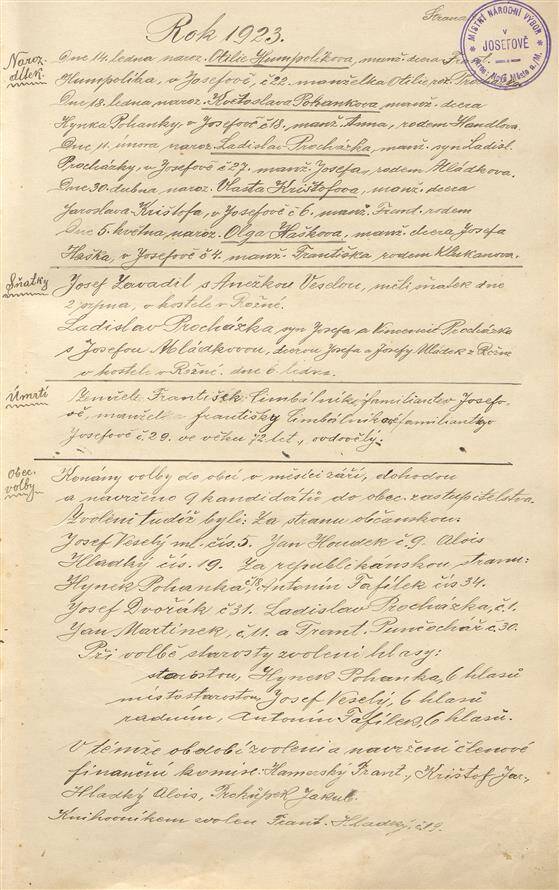 Strana
MÍSTNÍ NÁRODNÍ VÝBOR
V
JOSEFOVĚ
Rok 1923.
Naroz.
dítek.
Dne 14. ledna naroz. Otilie Humpolíkova, manž. dcera
Humpolíka, v Josefově, č. 22. manželka Otilie, roz.
Dne 18. ledna naroz. Květoslava Pohankova, manž. dcera
Hynka Pohanky, v Josefově č 18. manž. Anna, rodem Handlova.
Dne 11. února naroz. Ladislav Procházka, manž. syn Ladisl.
Procházky, v Josefově č 27. manž. Josefa, rodem Mládkova.
Dne 30. dubna naroz. Vlasta Krištofova, manž. dcera
Jaroslava Krištofa, v Josefově č 6. manž. Frant. rodem
Dne 5. května naroz. Olga Hašková, manž. dcera Josefa
Haška, v Josefově č 4. manž. Františka rodem
Sňatky
Josef Zavadil s Anežkou Veselou, měli sňatek dne
2 srpna, v kostele v Rožné.
Ladislav Procházka syn Josefa a Procházka
s Josefou Mládkovou, dcerou Josefa a Josefy Mládek z Rožné
v kostele v Rožné, dne 6 ledna.
Úmrtí
Zemřel František Cimbálník, familiant v Josefo-
vě, manžel Františky Cimbálníkové familiantky
Josefově č 29. ve věku 72 let, ovdověly.
Obec.
volby.
Konány volby do obcí v měsíci září, dohodou
a navrženo 9 kandidátů do obec. zastupitelstva.
Zvoleni tudíž byli: Za stranu občanskou:
Josef Veselý ml. čís. 5. Jan Houdek č 9. Alois
Hladký čís. 19. Za republikánskou stranu:
Hynek Pohanka č 18, Antonín Tafílek čís 34.
Josef Dvořák č 31. Ladislav Procházka, č. 1.
Jan Martinek, č. 11. a Frant. Punčochář č 30.
Při volbě starosty zvoleni hlasy:
starostou, Hynek Pohanka, 6 hlasů
místostarostou, Josef Veselý, 6 hlasů
radním, Antonín Tafílek, 6 hlasů.
V témže období zvoleni a navrženi členové
finanční komise: Hamerský Frant., Krištof Jar.,
Hladký Alois, Jakub.
Knihovníkem zvolen Frant. Hladký, č 19.